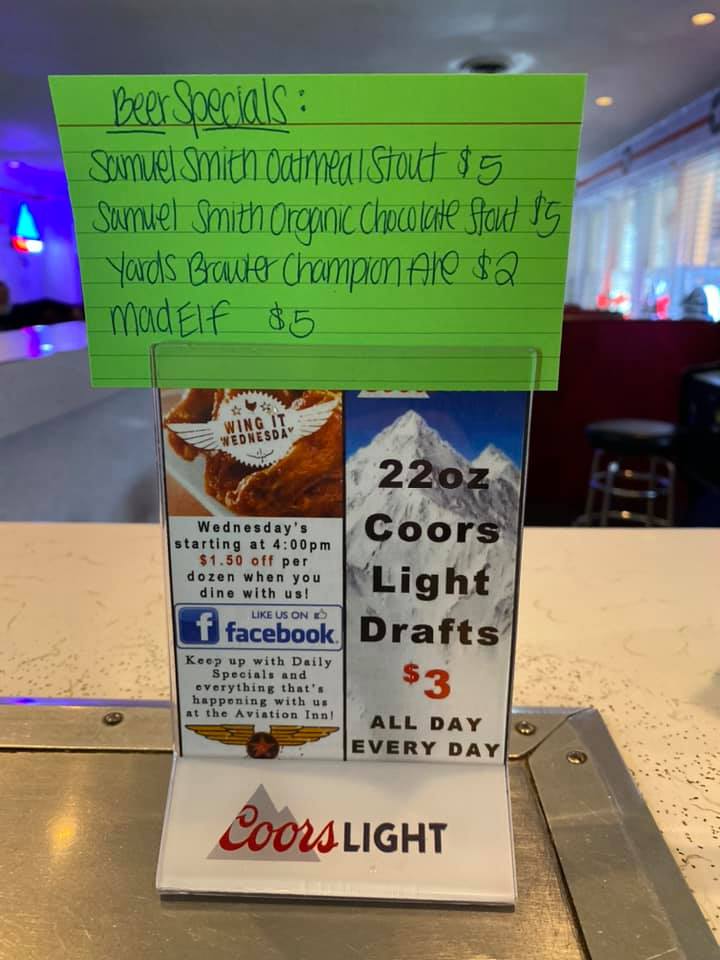 Beer Specials:
Samuel Smith Oatmeal Stout $5
Samuel Smith Organic Chocolate Stout $5
Yards Brawler Champion Ale $2
Mad Elf $5
WING IT
WEDNESDAY
Wednesday's
starting at 4:00pm
$1.50 off per
dozen when you
dine with us!
LIKE US ON
f facebook.
Keep up with Daily
Specials and
everything that's
happening with us
at the Aviation Inn!
22oz
Coors
Light
Drafts
$3
ALL DAY
EVERY DAY
Coors LIGHT